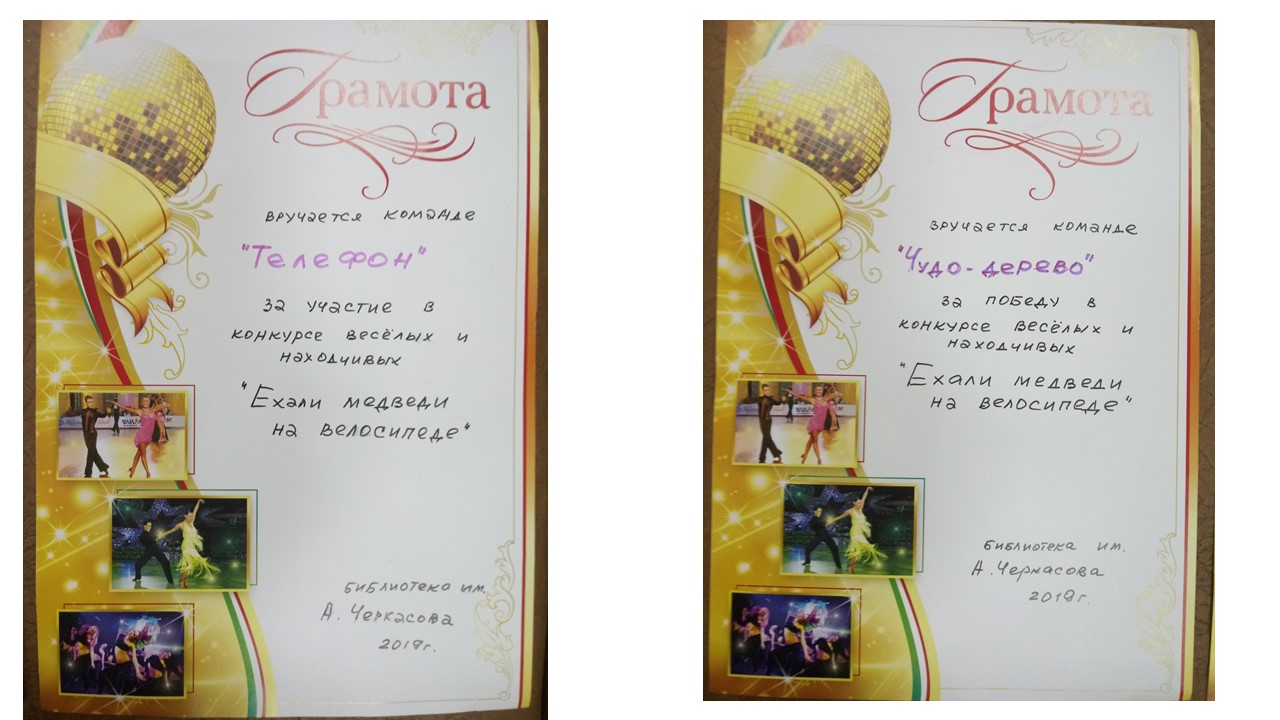 Грамота
вручается команде
"Телефон"
за участие в
конкурсе весёлых и
находчивых
"Ехали медведи
на велосипеде"
библиотека им.
А. Черкасова
2019г.
Грамота
вручается команде
"Чудо-дерево"
за победу в
конкурсе весёлых и
находчивых
"Ехали медведи
на велосипеде"
библиотека им.
А. Черкасова
2019г.